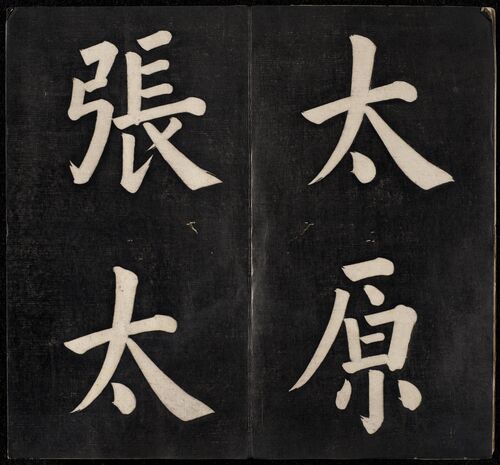 太原
張太